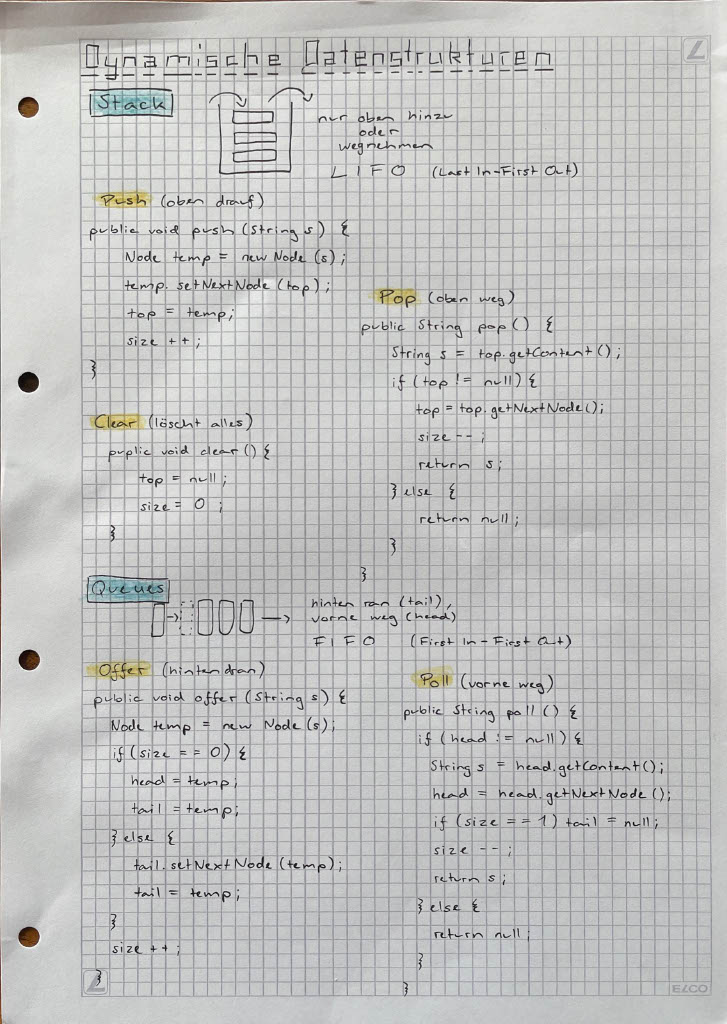 Dynamische Datenstrukturen
Stack
nur oben hinzu
oder
wegnehmen
LIFO (Last In-First Out)
Push (oben drauf)
public void push (String s) {
Node temp = new Node (s);
temp. setNextNode (top);
top = temp;
size ++;
}
Clear (löscht alles)
puplic void clear () {
top = null;
size = 0 ;
}
Pop (oben weg)
public String pop () {
String s = top.getContent ();
if (top != null) {
top = top.getNextNode();
size -- ;
return s;
} else {
return null;
}
}
Queues
hinten ran (tail),
vorne weg (head)
FIFO (First In-First Out)
Offer (hinten dran)
public void offer (String s) {
Node temp = new Node (s);
if (size == 0) {
head = temp;
tail = temp;
} else {
tail. setNextNode (temp);
tail = temp;
}
size ++;
}
Poll (vorne weg)
public String poll () {
if (head != null) {
String s = head.getContent();
head = head.getNextNode ();
if (size == 1) tail = null;
size -- ;
return s;
} else {
return null;
}
}
ELCO